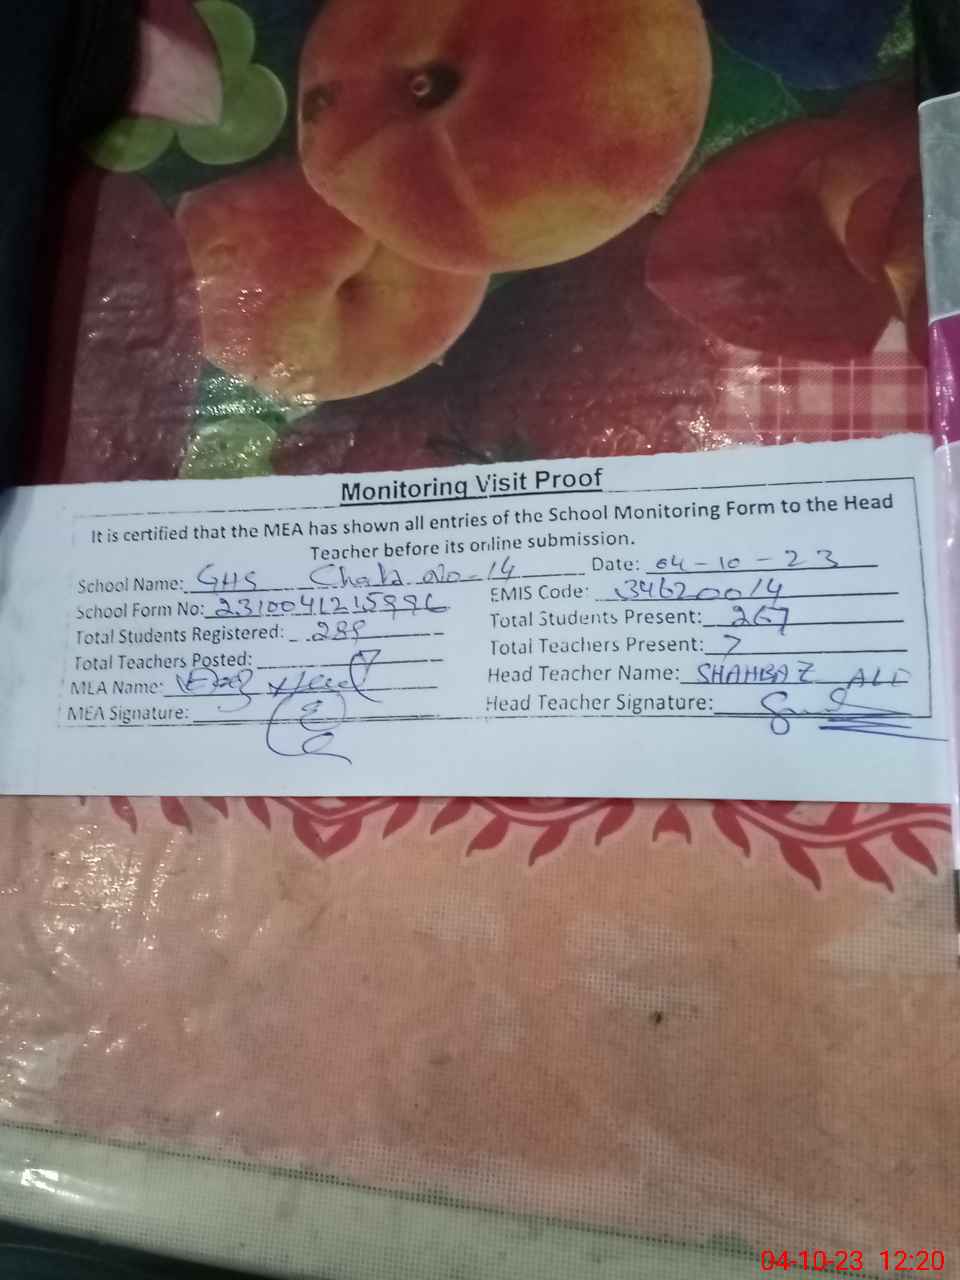 Monitoring Visit Proof
It is certified that the MEA has shown all entries of the School Monitoring Form to the Head
Teacher before its online submission.
School Name: GHS Chak No-14 Date: 04-10-23
School Form No: EMIS Code: 34620014
Total Students Registered: Total Students Present: 267
Total Teachers Posted: Total Teachers Present: 7
MEA Name: Head Teacher Name: SHAHBAZ ALI
MEA Signature: Head Teacher Signature:
04-10-23 12:20